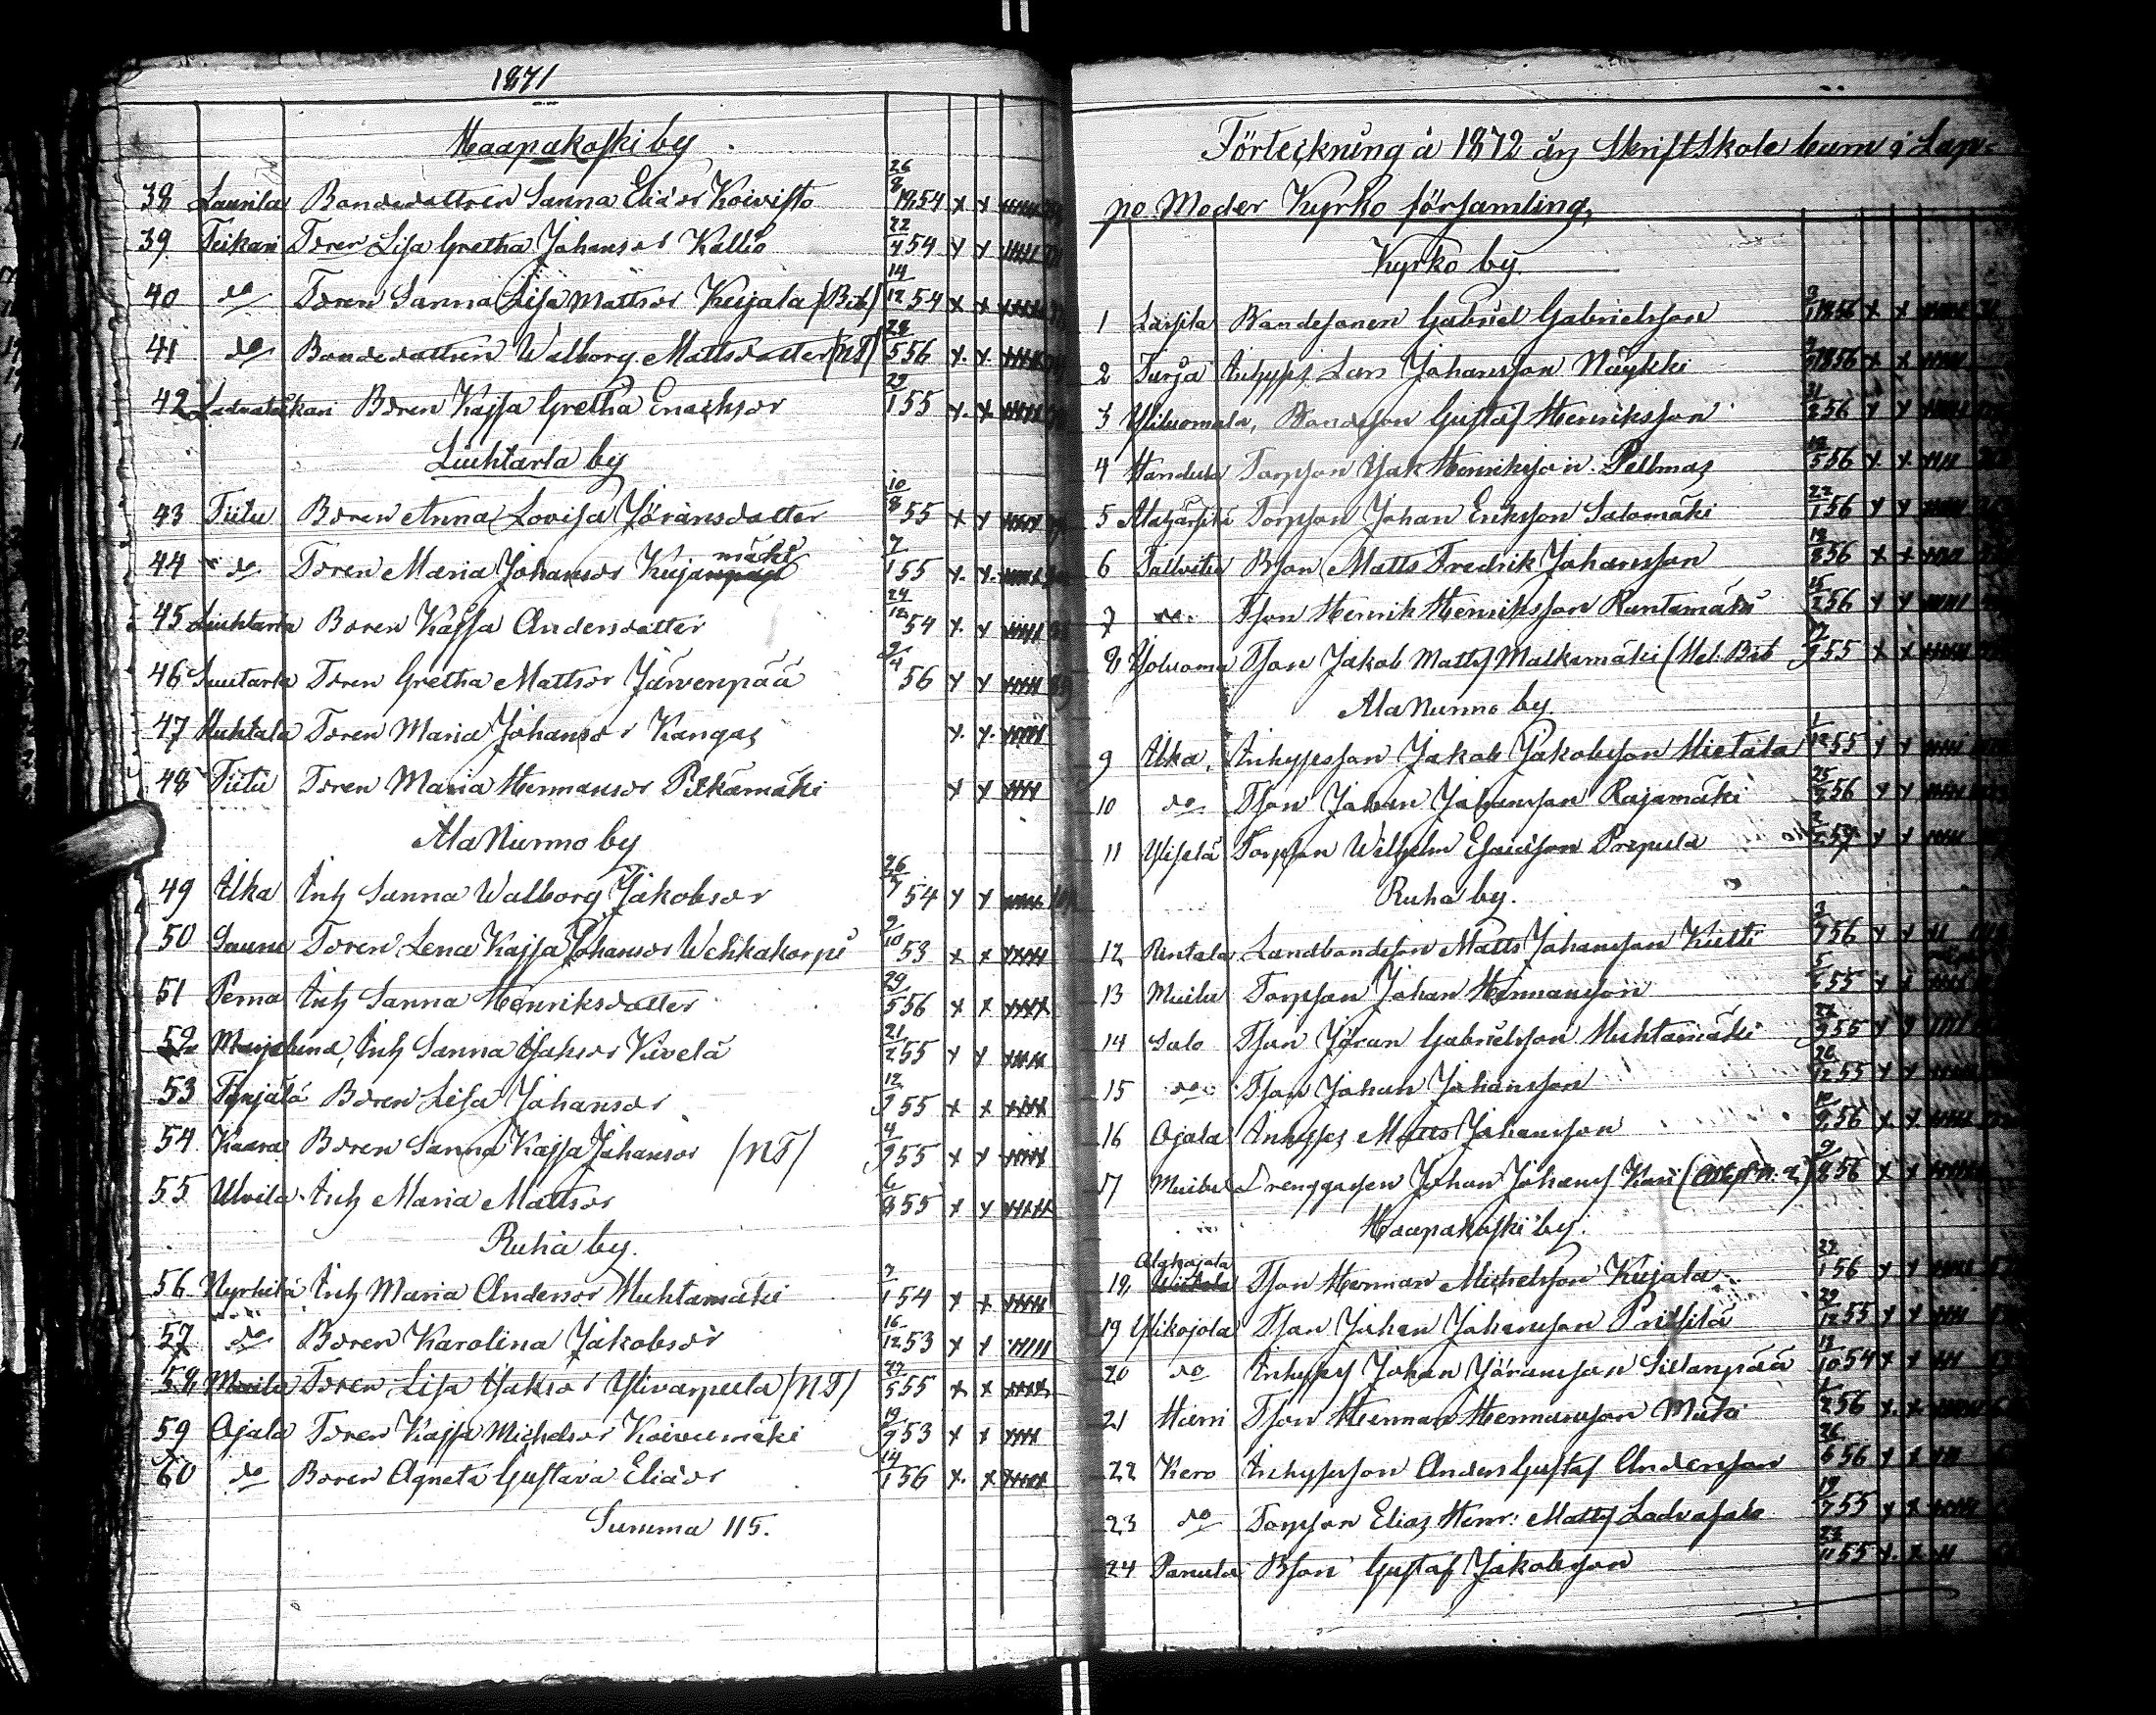 1871
Haapakoski by
38 Laurila Bondedottren Sanna Eliædr Koivisto 26/8 1854 x x
39 Teikari Toren Lisa Gretha Johansdr Kallio 22/4 54 x x
40 do Toren Sanna Lisa Mattsdr Kujala (Bib) 14/12 54 x x
41 do Bondedottren Walborg Mattsdotter (NT) 28/5 56 x x
42 Boren Kajsa Gretha Erachsdr 29/1 55 x x
Liuhtarla by
43 Tiitu Boren Anna Lovisa Jöransdotter 10/8 55 x x
44 do Toren Maria Johansdr Kujanmäki 7/1 55 x x
45 Liuhtarla Boren Kajsa Andersdotter 24/12 54 x x
46 Suutarla Toren Gretha Mattsdr Järvenpää 2/4 56 x x
47 Ruhtala Toren Maria Johansdr Kangas x x
48 Tiitu Toren Maria Hermansdr Pitkämäki x x
Ala Nurmo by
49 Alka Inh Sanna Walborg Jakobsdr 26/7 54 x x
50 Saunu Toren Lena Kajsa Johansdr Wehkakorpi 9/10 53 x x
51 Perna Inh Sanna Henriksdotter 29/5 56 x x
52 Inh Sanna Isaksdr Kivelä 21/2 55 x x
53 Boren Lisa Johansdr 12/9 55 x x
54 Kaara Boren Sanna Kajsa Johansdr (NT) 4/9 55 x x
55 Ulvila Inh Maria Mattsdr 6/8 55 x x
Ruha by.
56 Nyrhilä Inh Maria Andersdr Muhtamäki 7/1 54 x x
57 do Boren Karolina Jakobsdr 16/12 53 x x
58 Toren Lisa Isaksdr Ylivarpula (NT) 27/5 55 x x
59 Ojala Toren Kajsa Michelsdr Koivumäki 19/9 53 x x
60 do Boren Agneta Gustava Eliædr 14/1 56 x x
Summa 115.
Förteckning å 1872 års Skriftskole barn i Lap-
po Moder Kyrko församling,
Kyrko by
1 Bondesonen Gabriel Gabrielsson 1856 x x
2 Turja Inhyses Lars Johansson Näykki 1856 x x
3 Yliluomala, Bondeson Gustaf Henriksson 56 x x
4 Handula Torpson Isak Henriksson Pellmas 18/5 56 x x
5 Torpson Johan Eriksson Salomäki 22/1 56 x x
6 Bson Matts Fredrik Johansson 18/8 56 x x
7 do Tson Henrik Henriksson Rantamäki 15/2 56 x x
8 Yoluoma Tson Jakob Matts Malkamäki (Hel. Bib 55 x x
Ala Nurmo by.
9 Alka, Inhysesson Jakob Jakobsson Hietala 1/12 55 x x
10 do Tson Johan Johansson Rajamäki 25/2 56 x x
11 Torpson Wilhelm Esaiasson Prepula x x
Ruha by.
12 Rintala Landbondeson Matts Johansson Kitti 3/7 56 x x
13 Muilu Torpson Johan Hermansson 5/6 55 x x
14 Salo Tson Jöran Gabrielsson Muhtamäki 22/9 55 x x
15 do Tson Johan Johansson 26/12 55 x x
16 Ojala Inhyses Matts Johansson 10/9 56 x x
17 Drenggossen Johan Johans Kari 9/8 56 x x
Haapakoski by.
18 Alakojola Tson Herman Michelsson Kujala 22/1 56 x x
19 Ylikojola Tson Johan Johansson Prittilä 29/12 55 x x
20 do Inhyses Johan Jöransson Sillanpää 18/10 54 x x
21 Tson Herman Hermansson 56 x x
22 Kero Inhysesson Anders Gustaf Andersson 26/6 56 x x
23 do Torpson Elias Henr: Matts Ladvasalo 19/7 55 x x
24 Panula Bson Gustaf Jakobsson 55 x x